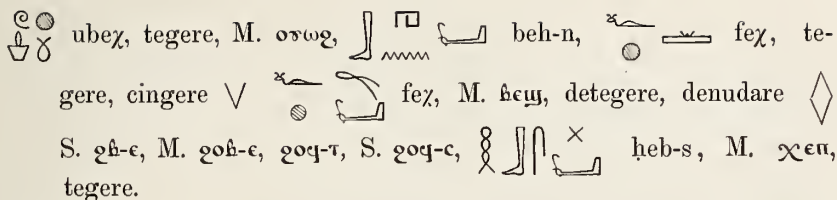 ubeχ, tegere, M. ⲟⲩⲱϩ, beh-n, feχ, te-
gere, cingere \/ feχ, M. ⲃⲉϣ, detegere, denudare ◊
S. ϩⲃ-ⲉ, M. ϩⲟⲃ-ⲉ, ϩⲟϥ-ⲧ, S. ϩⲟϥ-ⲥ, ḥeb-s, M. ⲭⲉⲡ,
tegere.